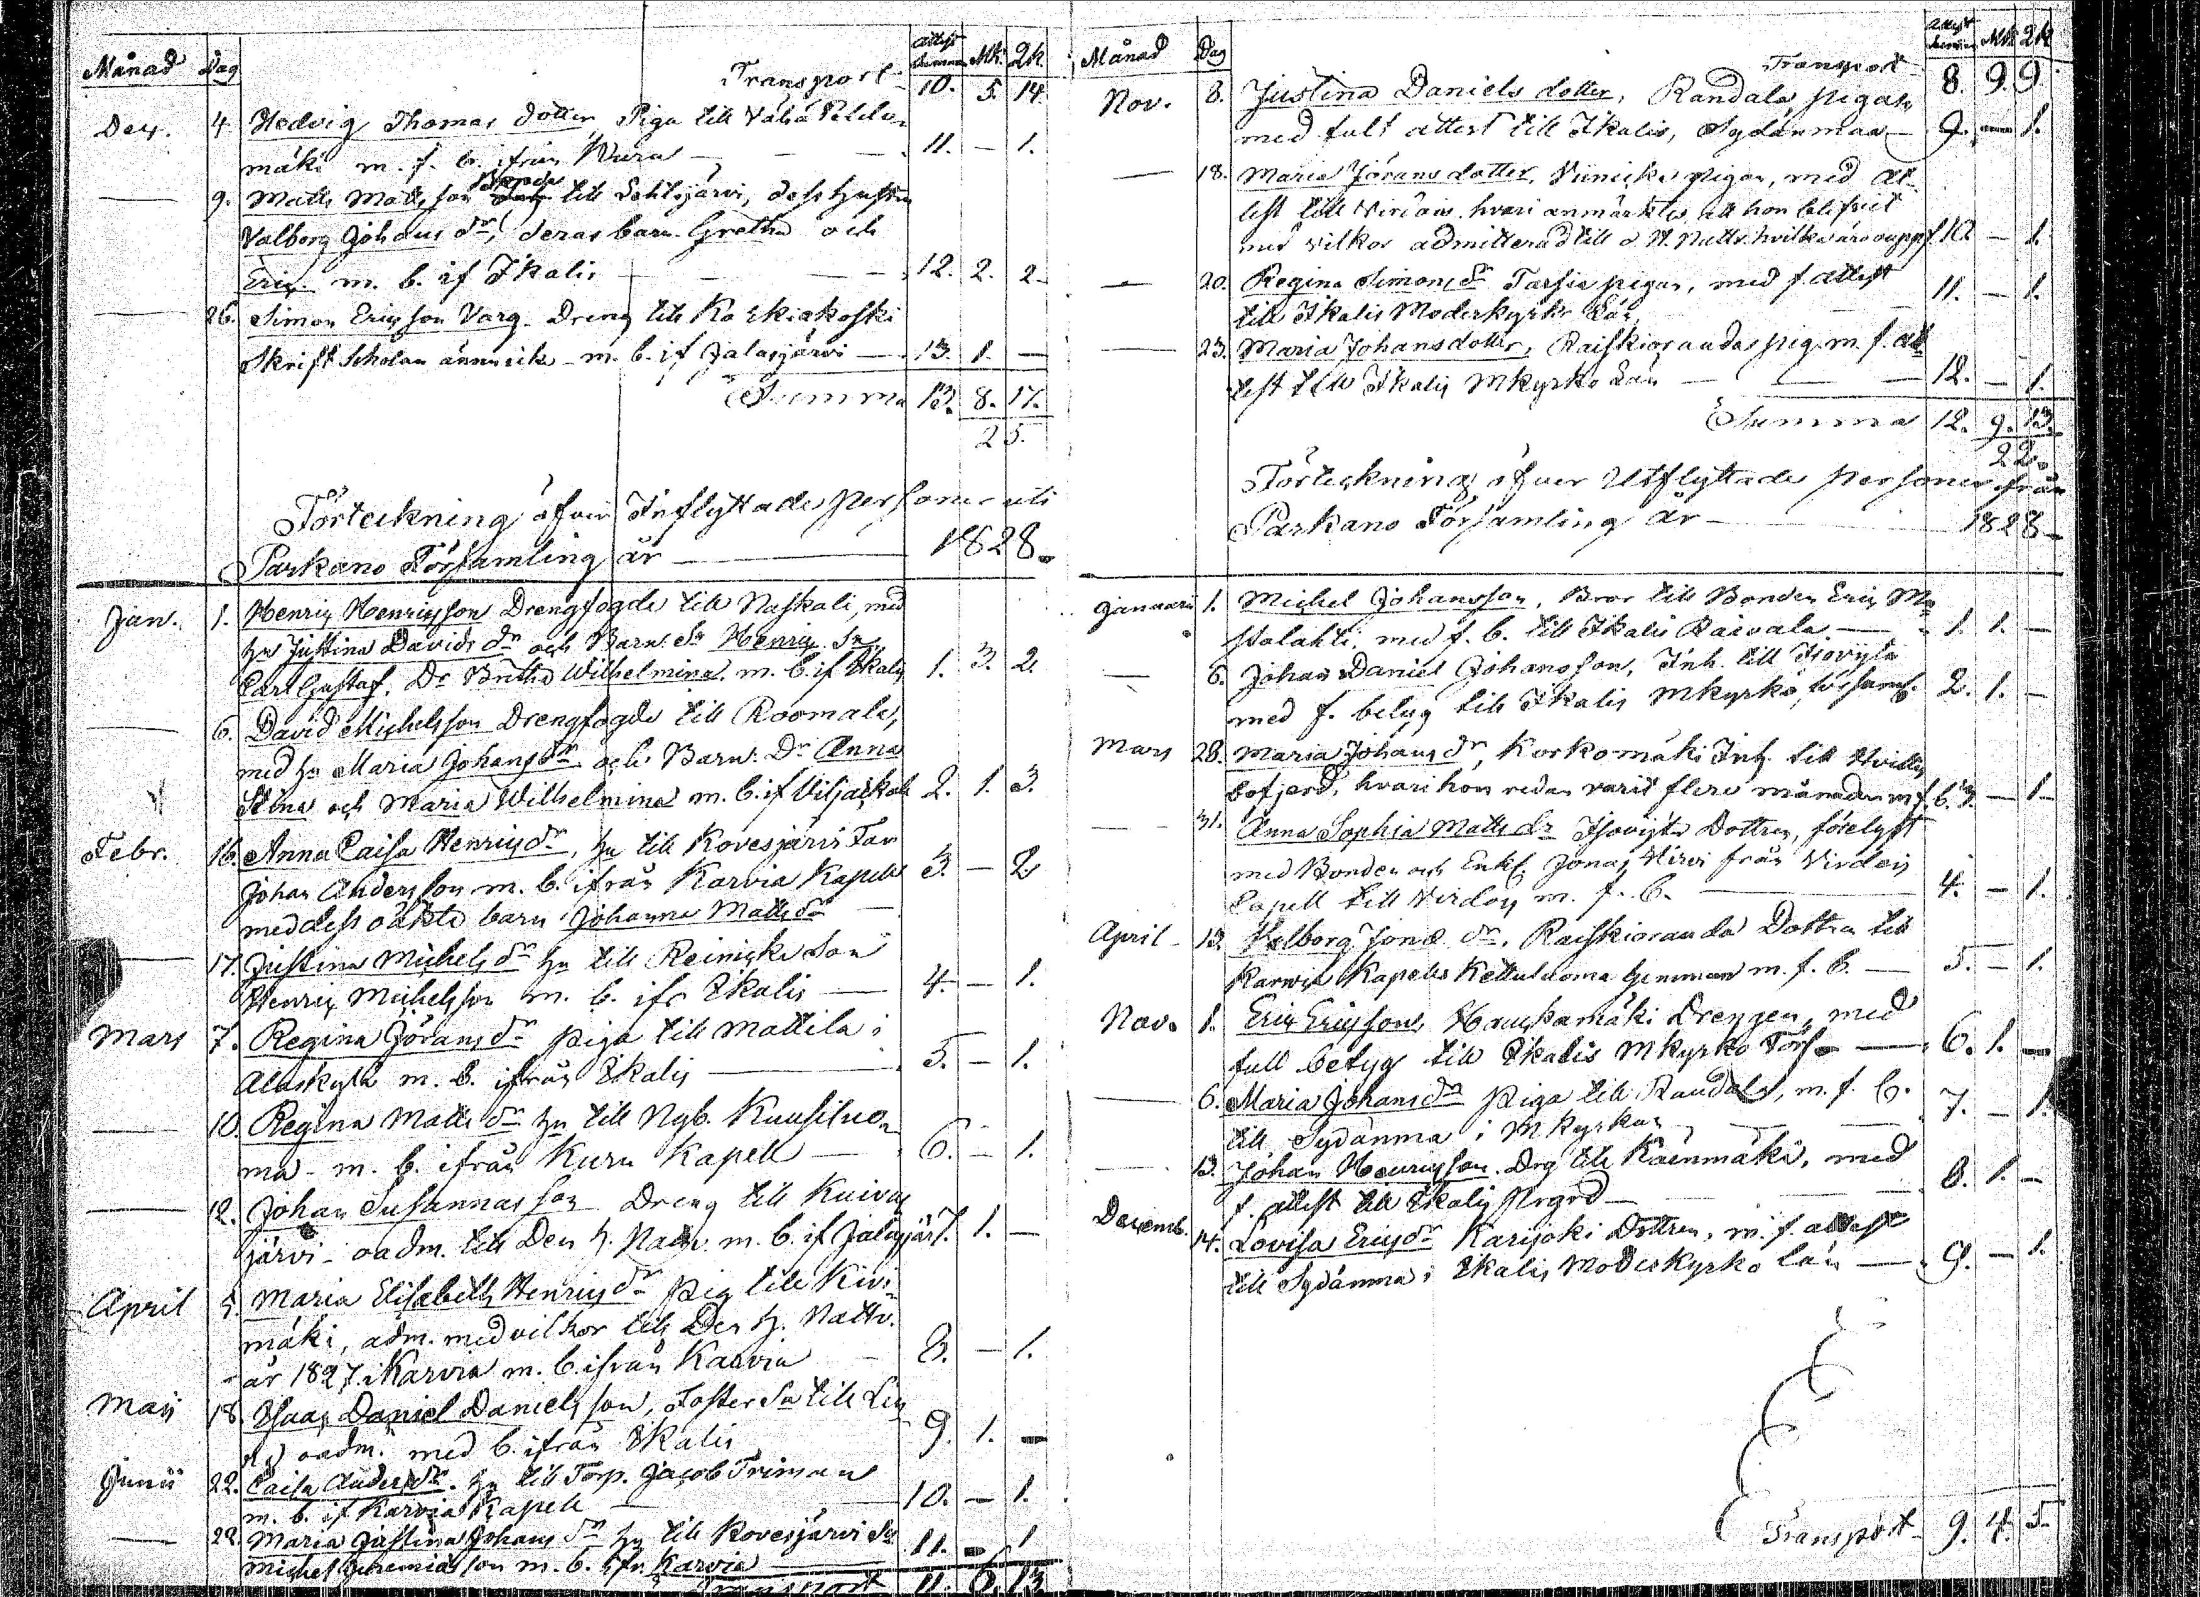 Månad Dag Attest Mk. Qk.
Transport 10. 5. 14.
Dec. 4. Hedvig Thomas dotter Piga till Vähä
mäki m. f. b. ifrån Kuru — 11. — 1.
— 9. Matts Matts son Bonde till Lehtsjärvi, dess hustru
Valborg Johans dr, deras barn Gretha och
Eric. m. b. if Ikalis — 12. 2. 2.
— 26. Simon Ericsson Varg. Dreng till Koskiakoski
Skrift Scholan ännu icke m. b. if Jalasjärvi — 13. 1. —
Summa 13. 8. 17.
25.
Förteckning öfver Inflyttade personer uti
Parkano Församling år — 1828.
Jan. 1. Henric Henricsson Drengfogde till Naskali, med
hu Justina Davids dr och Barn. Sr Henric Sr
Carl Gustaf. Dr Britha Wilhelmina. m. b. if Ikalis 1. 3. 2.
— 6. David Michelsson Drengfogde till Roomala,
med hu Maria Johans dr och Barn. Dr Anna
Stina och Maria Wilhelmina m. b. if Viljackala 2. 1. 3.
Febr. 16. Anna Caisa Henrics dr, hu till Kovesjärvi
Johan Andersson m. b. ifrån Karvia Kapell 3. — 2.
med dess oäkta barn Johanna Matts dr —
— 17. Justina Michels dr hu till Reinicke Son
Henric Michelsson m. b. ifr Ikalis — 4. — 1.
Mars 7. Regina Jörans dr piga till Mattila i
Alaskylä m. b. ifrån Ikalis — 5. — 1.
— 10. Regina Matts dr hu till Ngb. Kuusiluo-
ma m. b. ifrån Kuru Kapell — 6. — 1.
— 12. Johan Susannas son Dreng till Kuivas
järvi oadm. till Den H. Nattv. m. b. if Jalasjär 7. 1. —
April 5. Maria Elisabeth Henrics dr pig till Kivi-
mäki, adm. med vilkor till Den H. Nattv.
år 1827. i Karvia m. b. ifrån Karvia — 8. — 1.
Maij 18. Isaac Daniel Danielsson, Foster Sn till
oadm. med b. ifrån Ikalis 9. 1. —
Junii 22. Caisa Anders dr. hu till Torp. Jacob Friman
m. b. if Karvia Kapell — 10. — 1.
— 22. Maria Justina Johans dr hu till Kovesjärvi Sn
Michel Jeremiasson m. b. ifr. Karvia 11. — 1
Transport 11. 6. 13
Månad Dag Attest Mk Qk
Transport 8. 9. 9.
Nov. 8. Justina Daniels dotter, Randala pigan
med fult attest till Ikalis, Sydänmaa — 9. — 1.
— 18. Maria Jörans dotter, Viinicka pigan, med at-
test till Virdois. hvari anmärktes, att hon blifvit
med vilkor admitterad till d. H. Nattv. hvilka äro ouppf. 10 — 1.
— 20. Regina Simons dr Tarsia pigan, med f. attest
till Ikalis Moderkyrko Län, 11. — 1.
— 23. Maria Johansdotter, Raiskioranda pig. m. f. at-
test till Ikalis Mkyrko Län — 12. — 1.
Summa 12. 9. 13.
22.
Förteckning öfver Utflyttade personer ifrån
Parkano Församling år — 1828
Januarii 1. Michel Johansson, Bror till Bonden Eric
m. f. b. till Ikalis Raivala. — 1. 1. —
— 6. Johan Daniel Johansson, Inh. till Isovijla
med f. betyg till Ikalis Mkyrko församl. 2. 1. —
Mars 28. Maria Johans dr, Korkomäki Inh. till Hvittis
bofjerd, hvari hon redan varit flere månader m f. b. 3. — 1.
— 31. Anna Sophia Matts dr Isovijla Dottren, förelyst
med Bonden och Enkl. Jonas Hirvi från Virdois
Capell till Virdois m. f. b. — 4. — 1.
April 13. Valborg Jonæ dr, Raiskioranda Dottren till
Karvia Kapells Kettuluoma hemman m. f. b. — 5. — 1.
Nov. 1. Eric Ericsson, Haukamäki Drengen, med
full betyg till Ikalis Mkyrko Förs. — 6. 1. —
— 6. Maria Johans dr piga till Raudala, m. f. b.
till Sydänma i Mkyrkan — 7. — 1.
— 13. Johan Henricsson. Drg till Käenmäki, med
f. attest till Ikalis Prgrd — 8. 1. —
Decemb. 14. Lovisa Erics dr Karijoki Dottren, m. f. attest
till Sydänma i Ikalis Moderkyrko län — 9. — 1.
Transport 9. 4. 5.